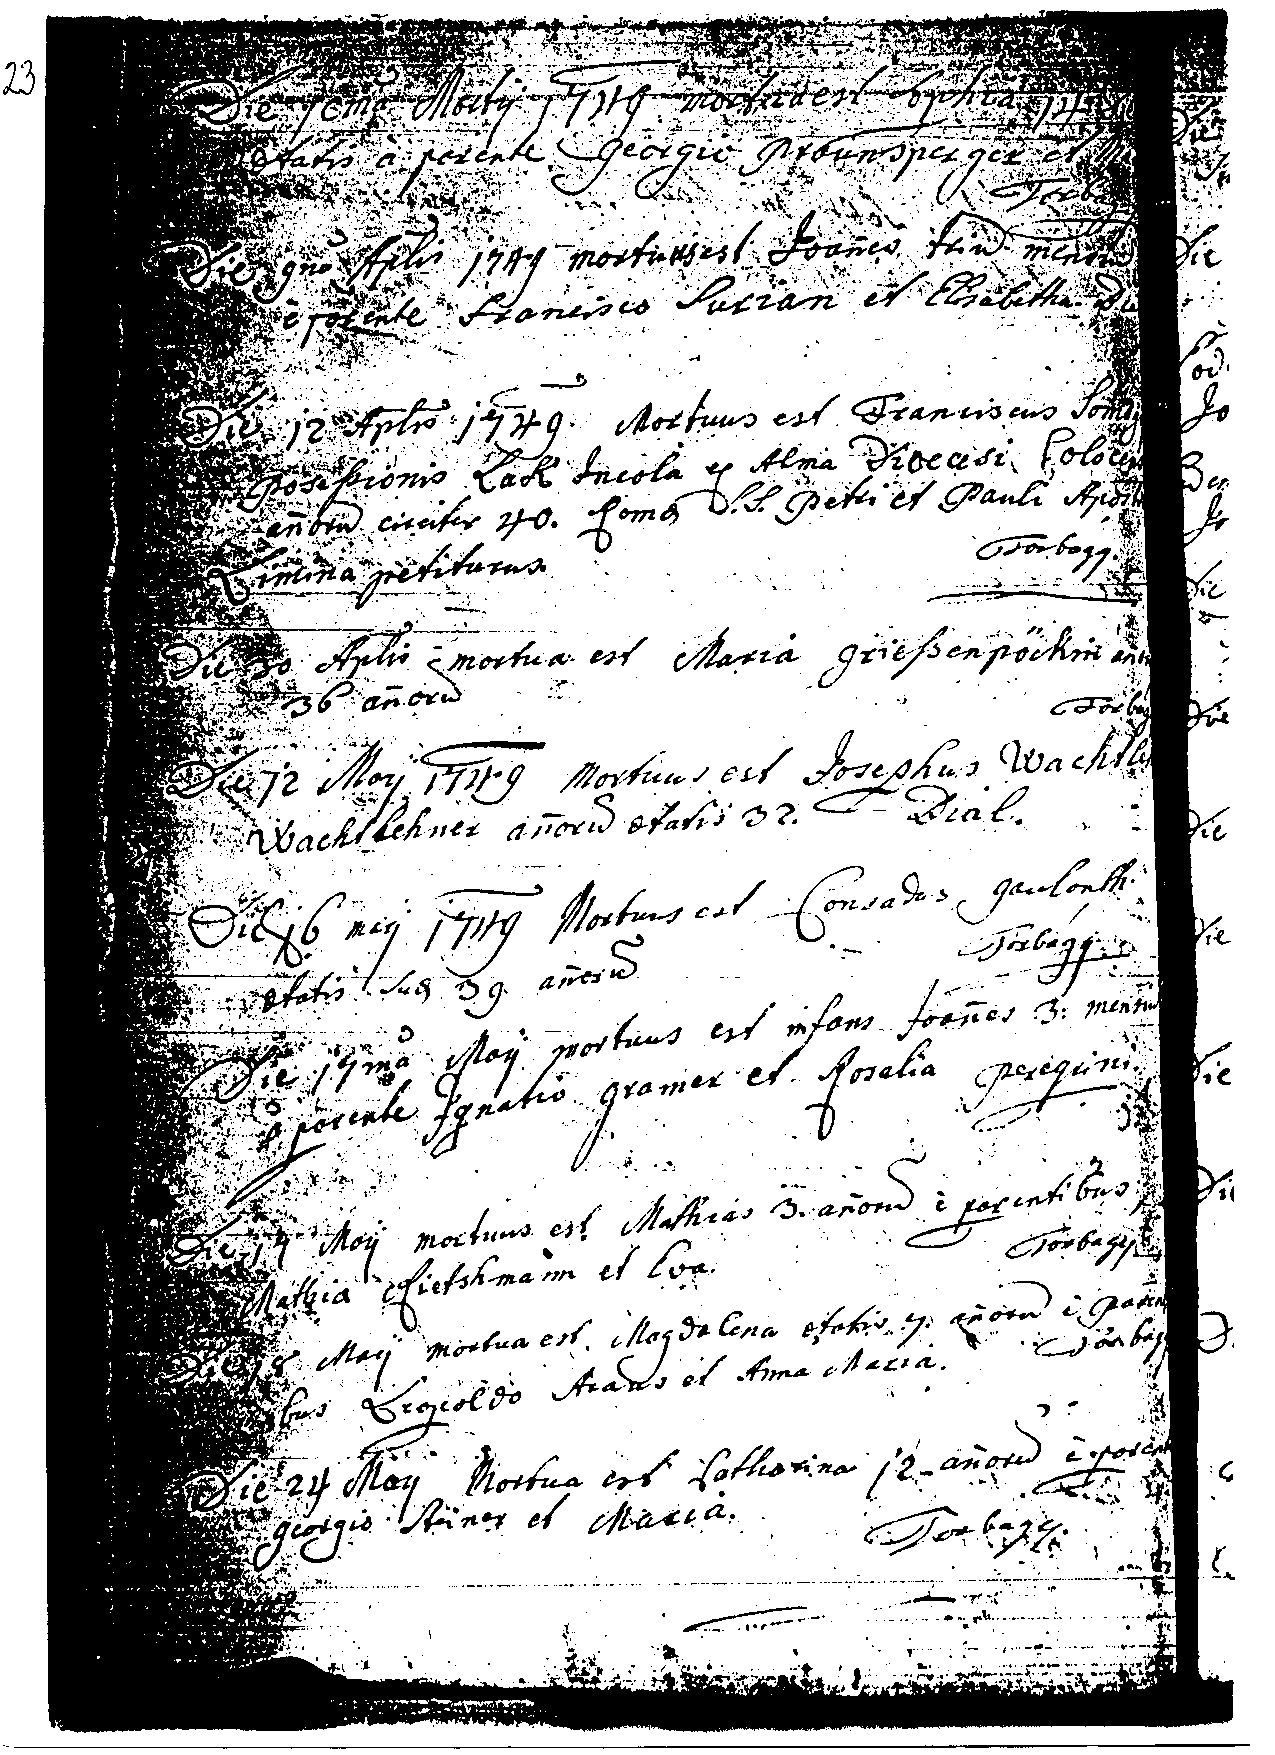 23
Die 7emâ Martij 1749 mortua est Sophia 14
etatis à parente Georgio Praunsperger et
Torba
Die 9nâ Aplis 1749 mortuus est Joan̄es triu mensiu
è parente Francisco Surian et Elisabetha
Die 12 Aplis 1749. Mortuus est Franciscus
posessionis Lack Incola ex Alma Diœcesi Coloce
an̄oru circiter 40. Romæ S.S. Petri et Pauli Apost
Limina petiturus. Torbagy.
Die 30 Aplis mortua est Maria Grießenpöckin
36 an̄oru Torbag
Die 12 Maij 1749 Mortuus est Josephus Wachtle
Wachtlehner an̄oru etatis 32. Dial.
Die 16 maij 1749 Mortuus est Conradus
etatis suæ 39 an̄oru Torbagy.
Die 17mâ Maij mortuus est infans Joan̄es 3. mensiu
è parente Ignatio Gramer et Rosalia peregrini.
Die 17 Maij mortuus est Mathias 3. an̄oru è parentibus
Mathia Rietshman̄ et Eva. Torbagy
Die 18 Maij mortua est Magdalena etatis 7. an̄oru è paren
ibus Leopoldo Araus et Anna Maria. Torbagy
Die 24 Maij Mortua est Catharina 12 an̄oru è parent
Georgio Steiner et Maria. Torbagy.